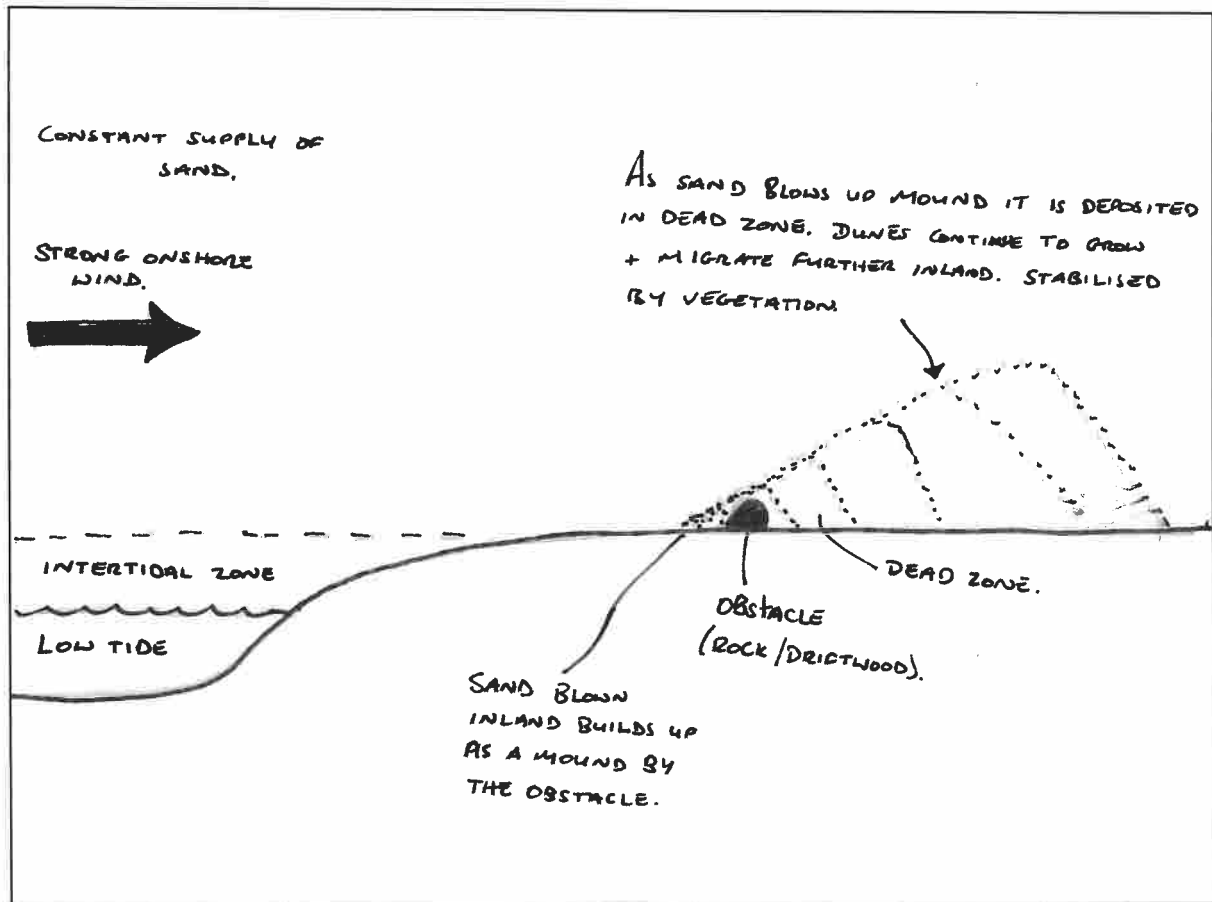 CONSTANT SUPPLY OF
SAND.
STRONG ONSHORE
WIND.
AS SAND BLOWS UP MOUND IT IS DEPOSITED
IN DEAD ZONE. DUNES CONTINUE TO GROW
+ MIGRATE FURTHER INLAND. STABILISED
BY VEGETATION.
INTERTIDAL ZONE
LOW TIDE
DEAD ZONE.
OBSTACLE
(ROCK/DRIFTWOOD).
SAND BLOWN
INLAND BUILDS UP
AS A MOUND BY
THE OBSTACLE.